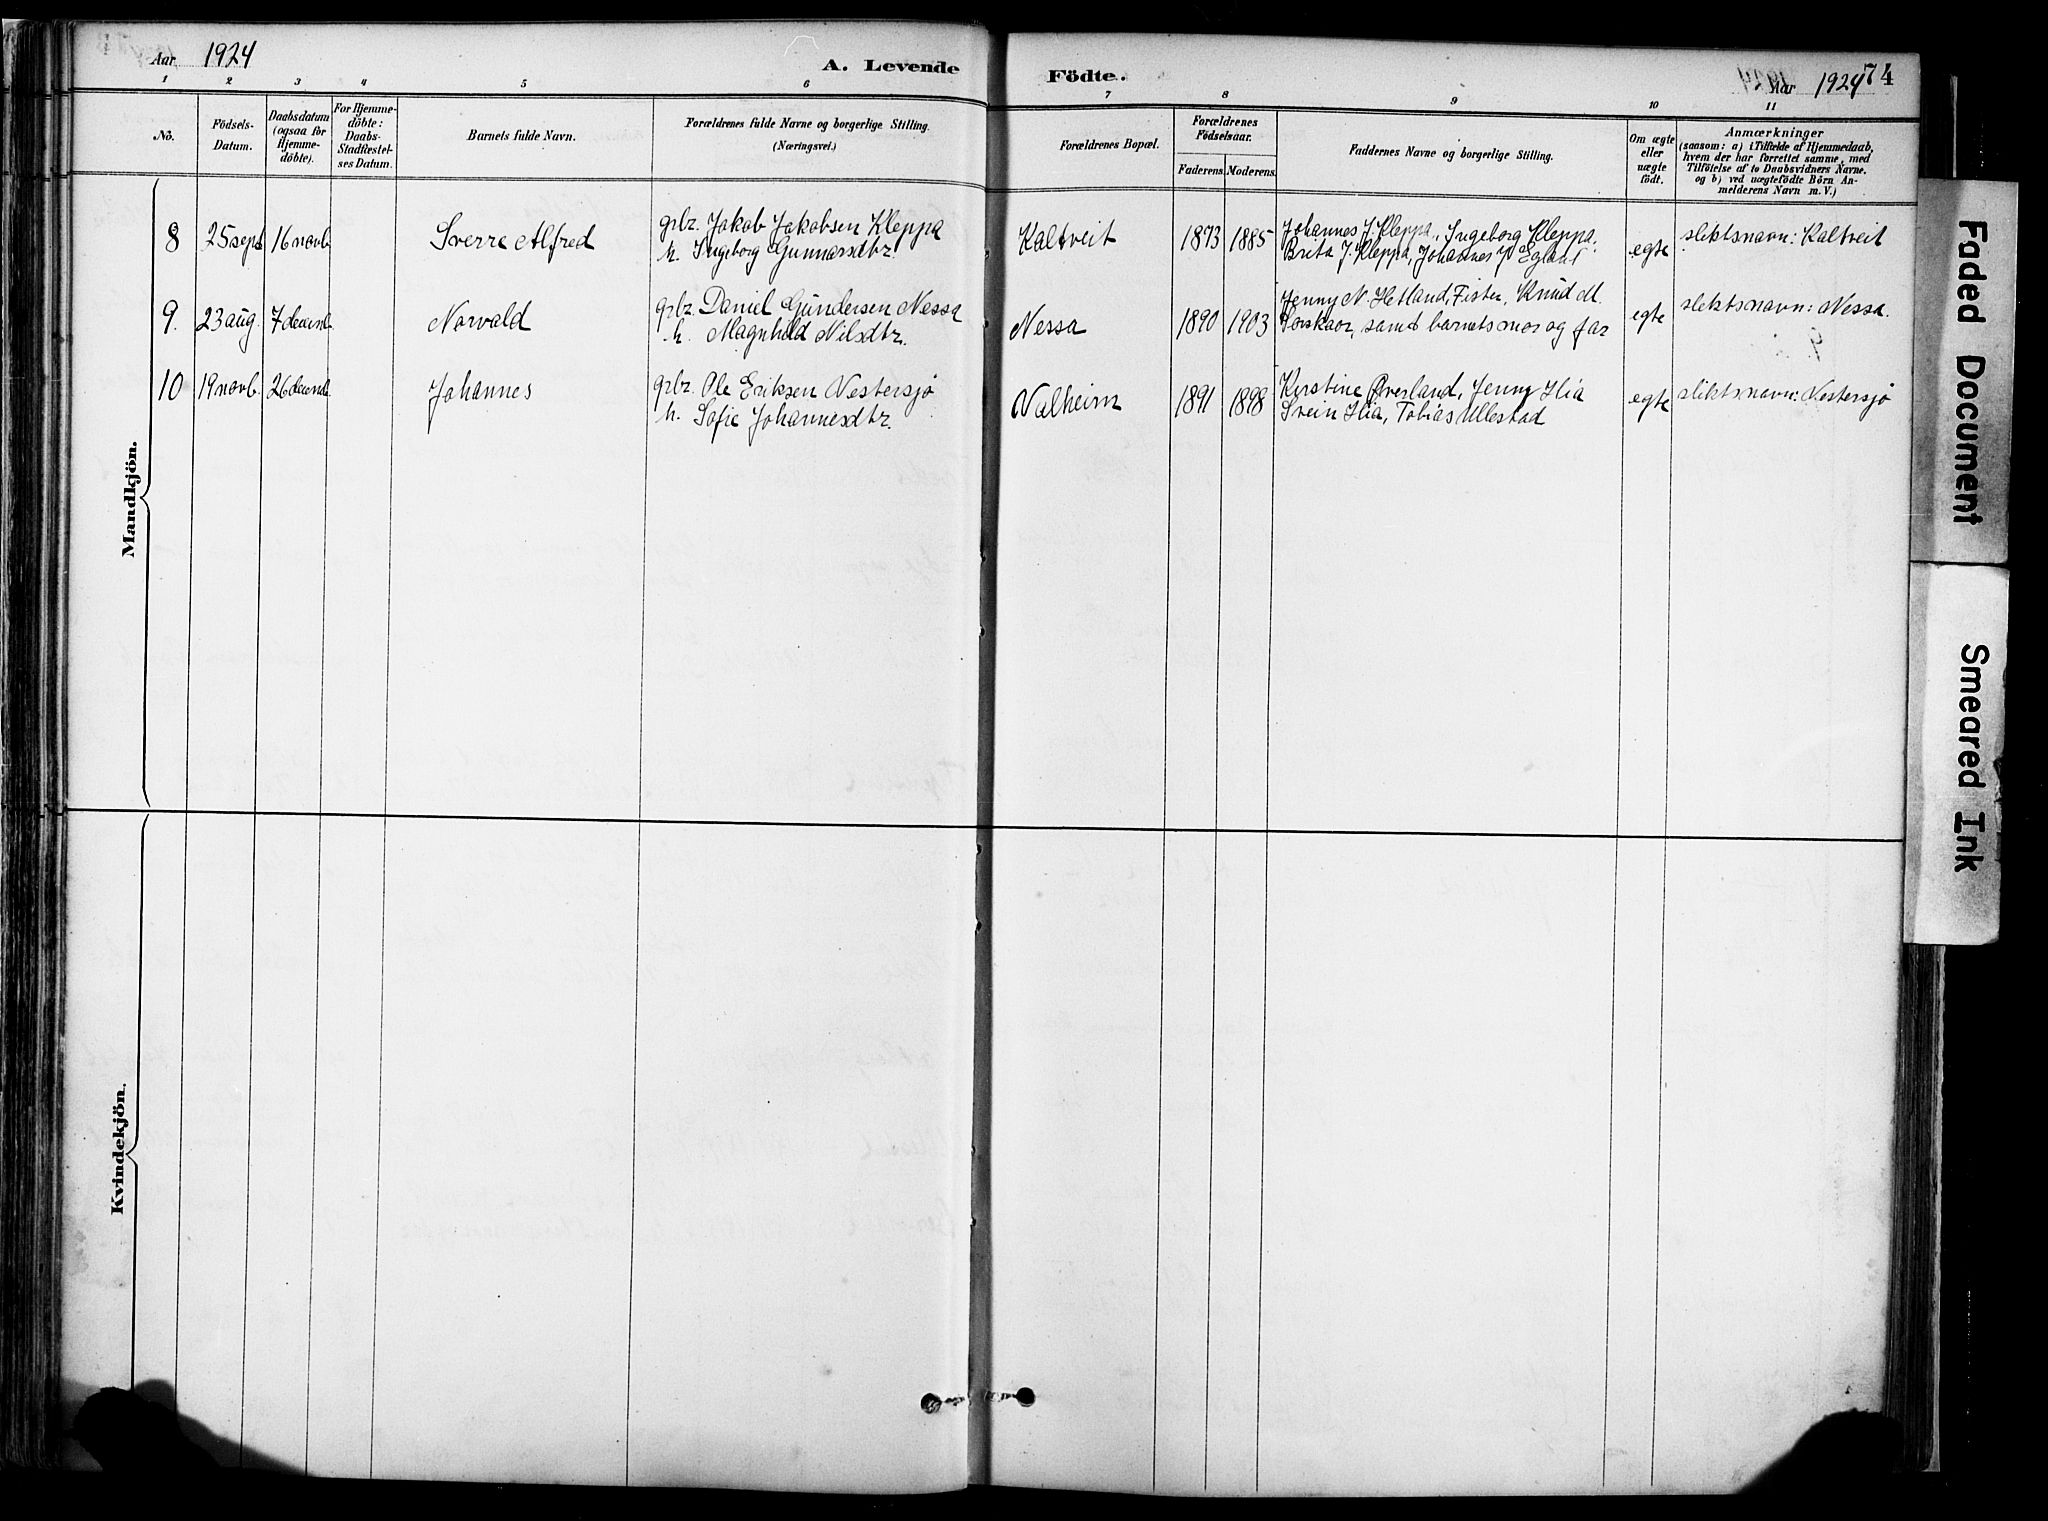 Aar 1924
A. Levende
Födte.
Aar 1924
74
1 2 3 4 5 6 7 8 9 10 11
No.
Födsels-
Datum.
Daabsdatum
(ogsaa for
Hjemme-
döbte).
For Hjemme-
döbte:
Daabs-
Stadfæstel-
ses Datum.
Barnets fulde Navn.
Forældrenes fulde Navne og borgerlige Stilling.
(Næringsvei.)
Forældrenes Bopæl.
Forældrenes
Födselsaar.
Faderens. Moderens.
Faddernes Navne og borgerlige Stilling.
Om ægte
eller
uægte
født.
Anmærkninger
(saasom: a) i Tilfælde af Hjemmedaab,
hvem der har forrettet samme, med
Tilföielse af to Daabsvidners Navne.
og b) ved uægtefödte Börn An-
melderens Navn m. V.)
Mandkjön.
8 25 sept 16 novb Sverre Alfred
grbr. Jakob Jakobsen Kleppa
h. Ingeborg Gunnarsdtr.
Kaltveit 1873 1885
Johannes J. Kleppa, Ingeborg Kleppa,
Brita J. Kleppa, Johannes
egte slektsnavn: Kaltveit
9. 23 aug. 7 decemb. Norvald
grbr. Daniel Gundersen Nessa
h. Magnhild Nilsdtr.
Nessa 1890 1903
Jenny N. Hetland, Fister, Knud M.
samt barnets mor og far
egte slektsnavn: Nessa.
10 19 novb. 26 decemb. Johannes
grbr. Ole Eriksen Vestersjø
h. Sofie Johannesdtr.
Valheim 1891 1898
Kirstine Øverland, Jenny Ilia
Svein Ilia, Tobias Ullestad
egte slektsnavn: Vestersjø
Kvindekjön.
Faded Document
Smeared Ink